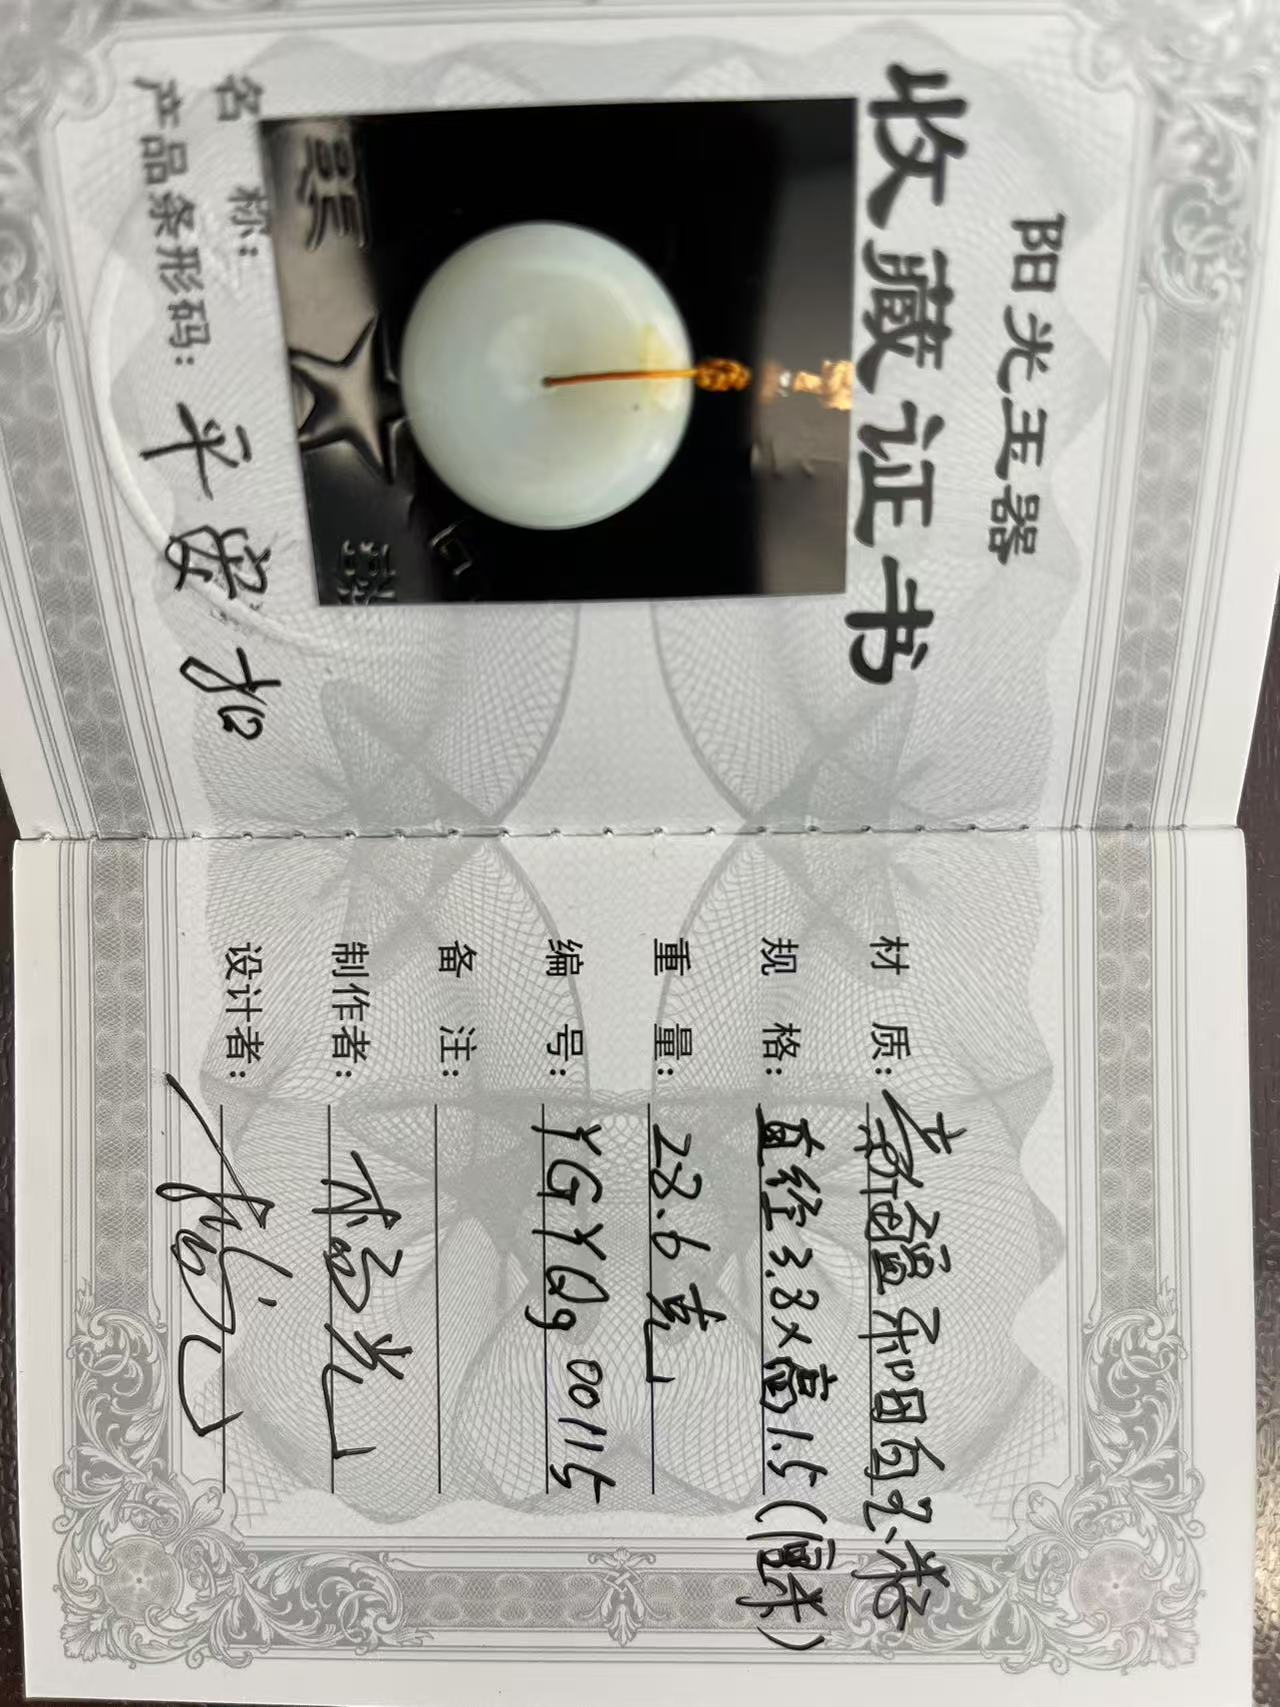 阳光玉器
收藏证书
名称：
产品条形码：平安扣
材质：新疆和阗白玉籽
规格：直径3.8×高1.5（厘米）
重量：28.6克
编号：YGYQg00115
备注：
制作者：
设计者：